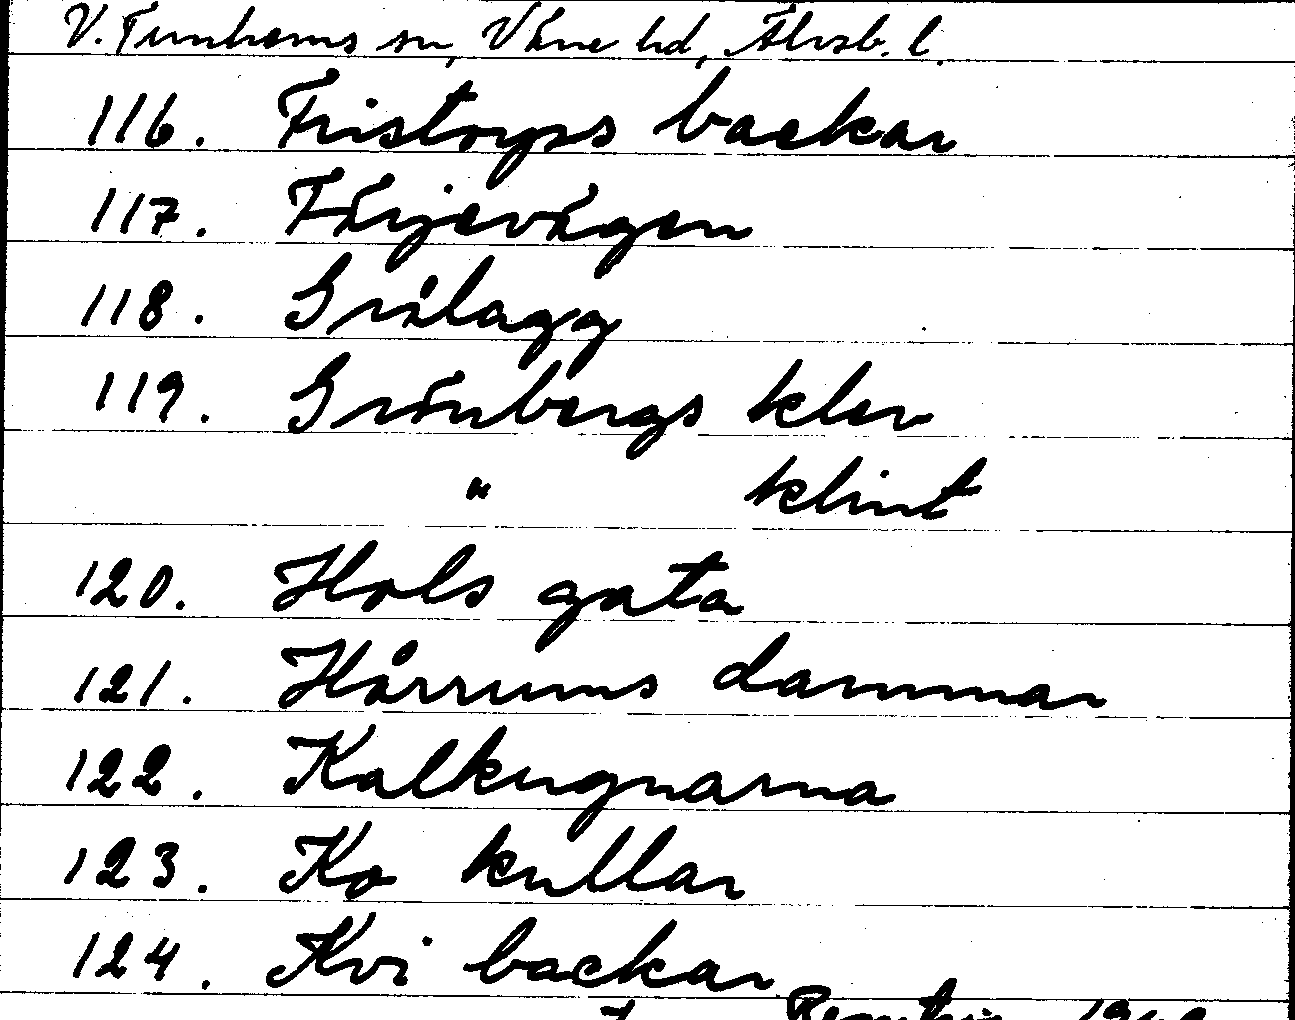 V. Tunhems sn, Väne hd, Älvsb. l.
116. Fristorps backar
117. Färjevägen
118. Grålagg
119. Grönbergs klev
" klint
120. Hols gata
121. Hårrums dammar
122. Kalkugnarna
123. Ko kullar
124. Kvi backar